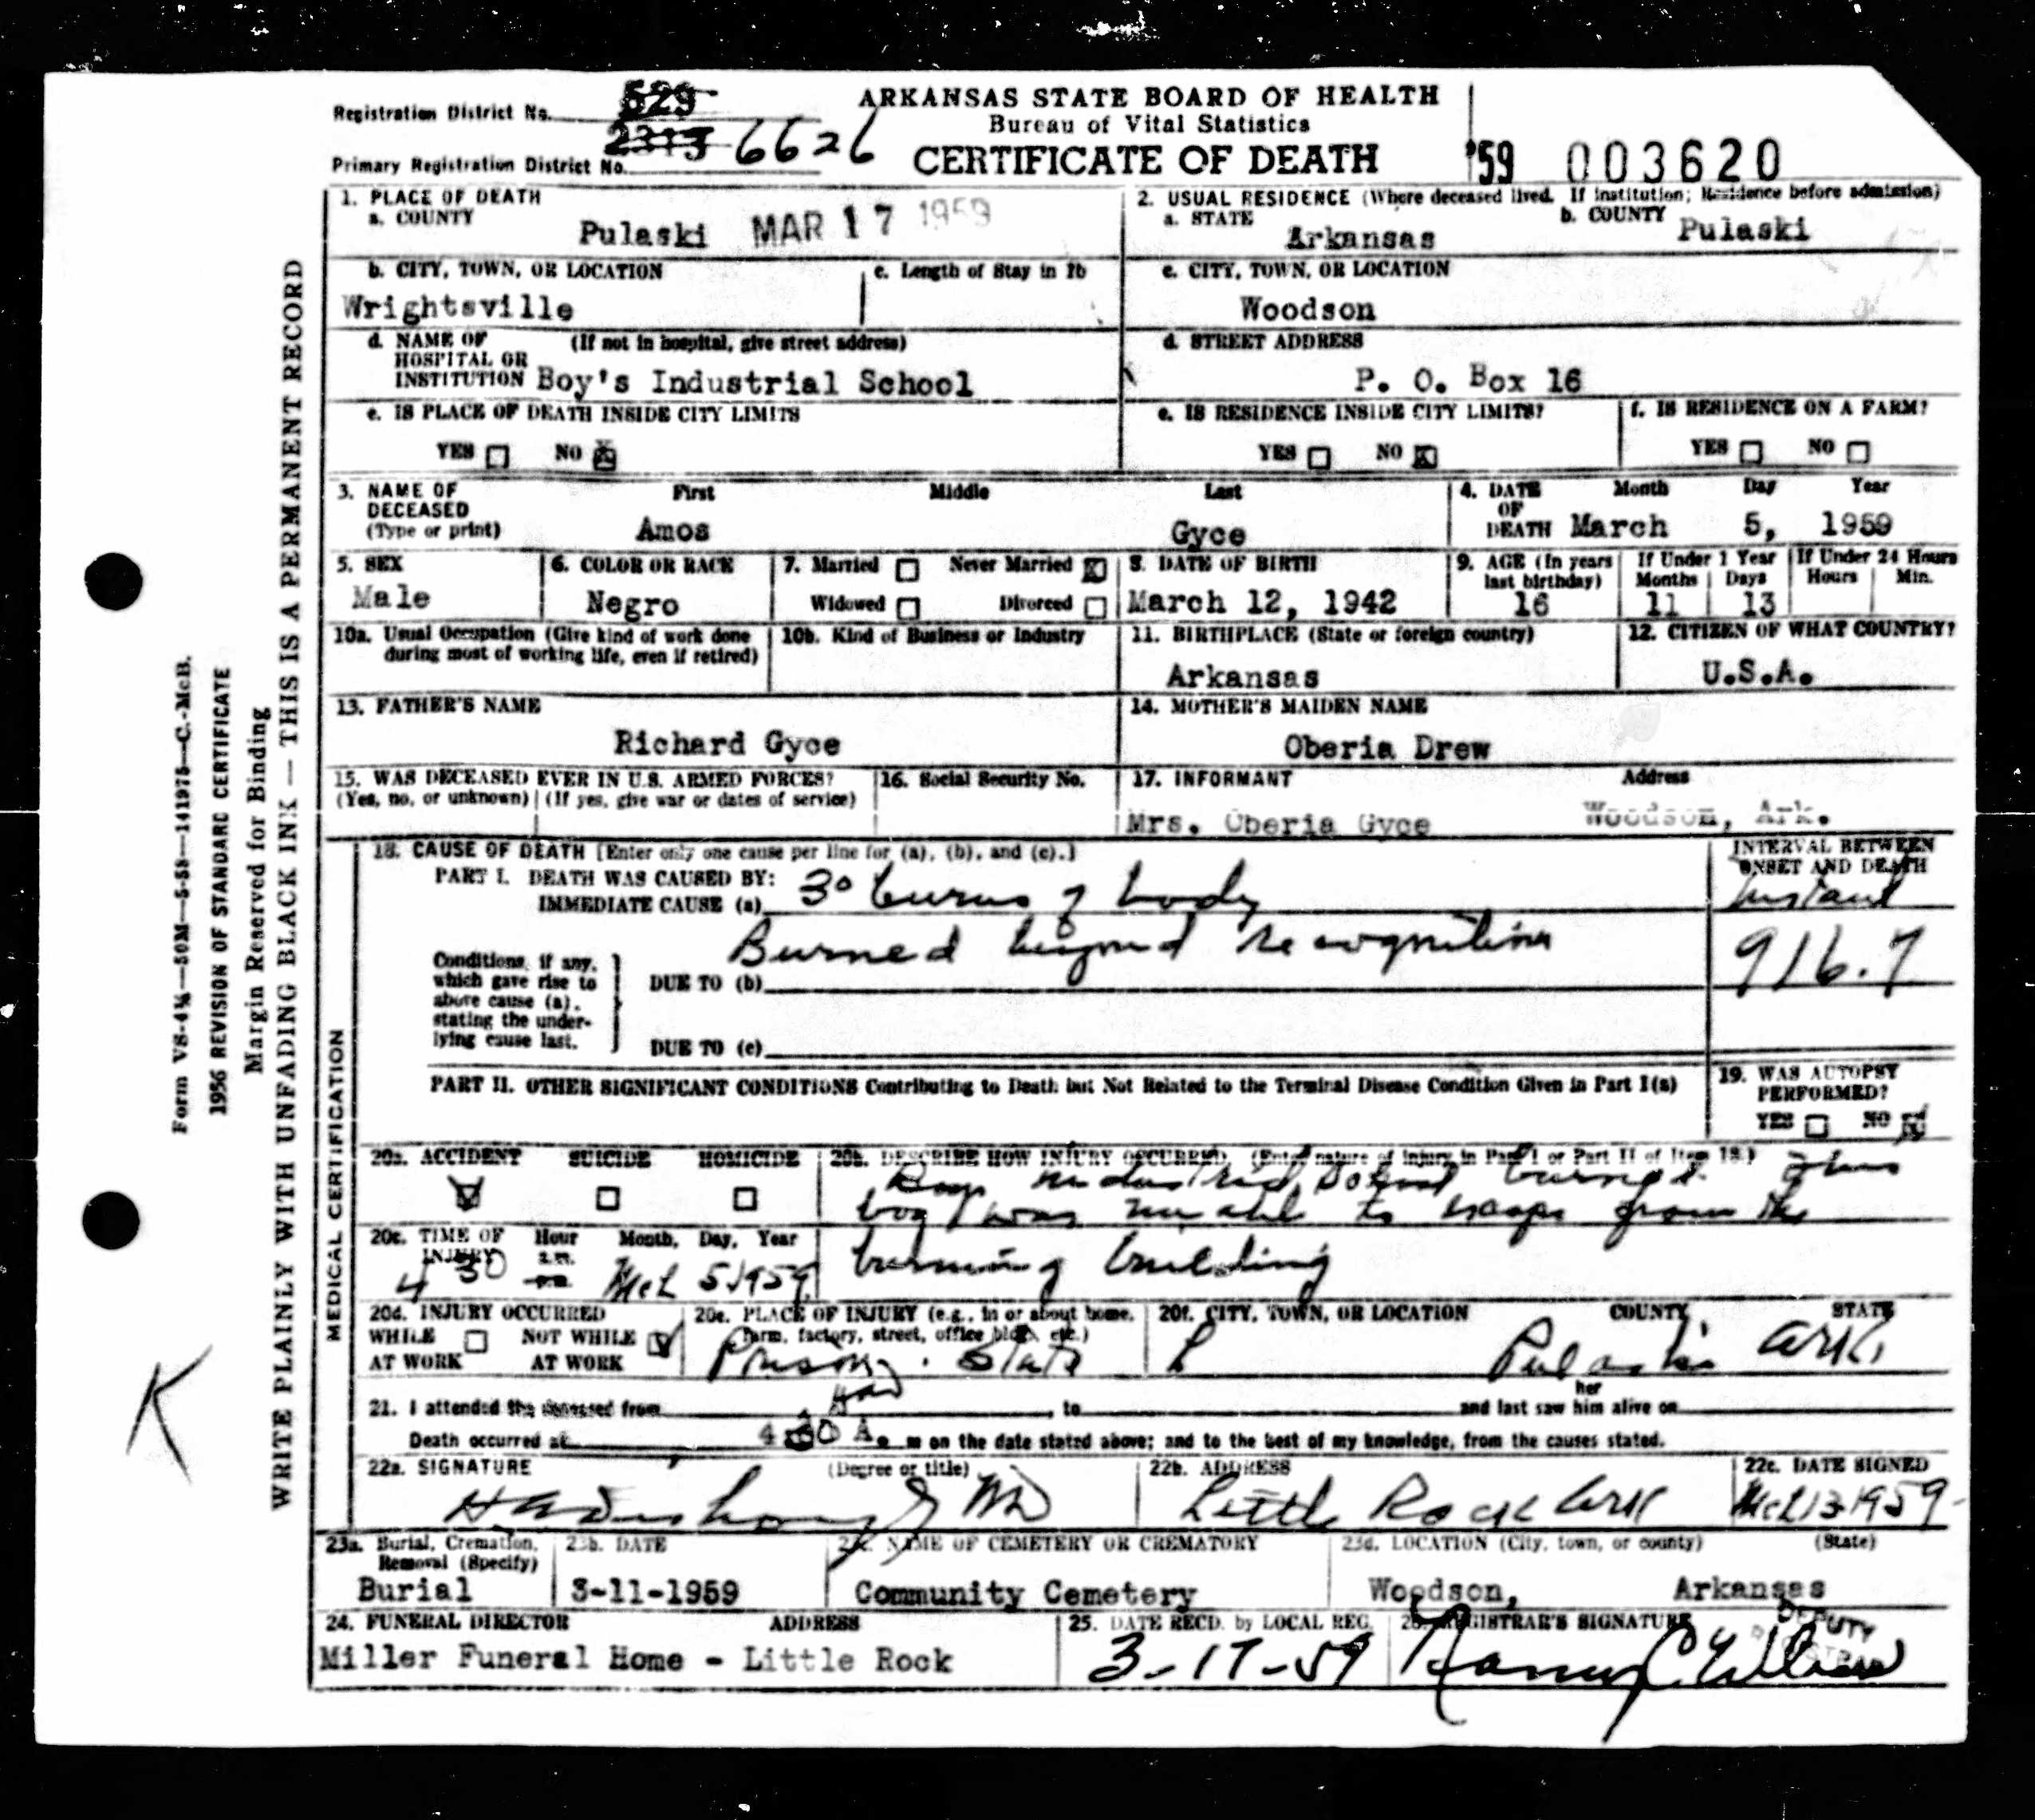 Registration District No. 529
ARKANSAS STATE BOARD OF HEALTH
Bureau of Vital Statistics
Primary Registration District No. 2313 6626
CERTIFICATE OF DEATH
'59 003620
1. PLACE OF DEATH
a. COUNTY
Pulaski MAR 17 1959
2. USUAL RESIDENCE (Where deceased lived. If institution; Residence before admission)
a. STATE Arkansas
b. COUNTY Pulaski
b. CITY, TOWN, OR LOCATION
Wrightsville
c. Length of Stay in 1b
c. CITY, TOWN, OR LOCATION
Woodson
d. NAME OF (If not in hospital, give street address)
HOSPITAL OR
INSTITUTION Boy's Industrial School
d. STREET ADDRESS
P. O. Box 16
e. IS PLACE OF DEATH INSIDE CITY LIMITS
YES NO X
e. IS RESIDENCE INSIDE CITY LIMITS?
YES NO X
f. IS RESIDENCE ON A FARM?
YES NO
3. NAME OF DECEASED (Type or print)
First Middle Last
Amos Gyce
4. DATE OF DEATH
Month Day Year
March 5, 1959
5. SEX
Male
6. COLOR OR RACE
Negro
7. Married Never Married X
Widowed Divorced
8. DATE OF BIRTH
March 12, 1942
9. AGE (In years last birthday)
16
If Under 1 Year
Months Days
11 13
If Under 24 Hours
Hours Min.
10a. Usual Occupation (Give kind of work done
during most of working life, even if retired)
10b. Kind of Business or Industry
11. BIRTHPLACE (State or foreign country)
Arkansas
12. CITIZEN OF WHAT COUNTRY?
U.S.A.
13. FATHER'S NAME
Richard Gyce
14. MOTHER'S MAIDEN NAME
Oberia Drew
15. WAS DECEASED EVER IN U.S. ARMED FORCES?
(Yes, no, or unknown) (If yes, give war or dates of service)
16. Social Security No.
17. INFORMANT Address
Mrs. Oberia Gyce Woodson, Ark.
MEDICAL CERTIFICATION
18. CAUSE OF DEATH [Enter only one cause per line for (a), (b), and (c).]
INTERVAL BETWEEN
ONSET AND DEATH
PART I. DEATH WAS CAUSED BY:
IMMEDIATE CAUSE (a) 3° burns of body
Instant
Burned beyond recognition
916.7
Conditions, if any,
which gave rise to
above cause (a),
stating the under-
lying cause last.
DUE TO (b)
DUE TO (c)
PART II. OTHER SIGNIFICANT CONDITIONS Contributing to Death but Not Related to the Terminal Disease Condition Given in Part I(a)
19. WAS AUTOPSY
PERFORMED?
YES NO X
20a. ACCIDENT SUICIDE HOMICIDE
20b. DESCRIBE HOW INJURY OCCURRED. (Enter nature of injury in Part I or Part II of Item 18.)
Boys Industrial School burned. This
boy was unable to escape from the
burning building
20c. TIME OF INJURY
Hour Month, Day, Year
4 30 a.m. p.m. Mch 5 1959
20d. INJURY OCCURRED
WHILE AT WORK
NOT WHILE AT WORK
20e. PLACE OF INJURY (e.g., in or about home,
farm, factory, street, office bldg., etc.)
Prison. State
20f. CITY, TOWN, OR LOCATION COUNTY STATE
Pulaski Ark.
21. I attended the deceased from , to and last saw her him alive on
Death occurred at 4 30 A. m on the date stated above; and to the best of my knowledge, from the causes stated.
22a. SIGNATURE (Degree or title)
MD
22b. ADDRESS
Little Rock Ark
22c. DATE SIGNED
Mch 13-1959
23a. Burial, Cremation, Removal (Specify)
Burial
23b. DATE
3-11-1959
23c. NAME OF CEMETERY OR CREMATORY
Community Cemetery
23d. LOCATION (City, town, or county) (State)
Woodson, Arkansas
24. FUNERAL DIRECTOR ADDRESS
Miller Funeral Home - Little Rock
25. DATE RECD. by LOCAL REG.
3-17-59
26. REGISTRAR'S SIGNATURE
DEPUTY
Form VS-4¼—50M—5-58—141975—C.-McB.
1956 REVISION OF STANDARD CERTIFICATE
Margin Reserved for Binding
WRITE PLAINLY WITH UNFADING BLACK INK — THIS IS A PERMANENT RECORD
K